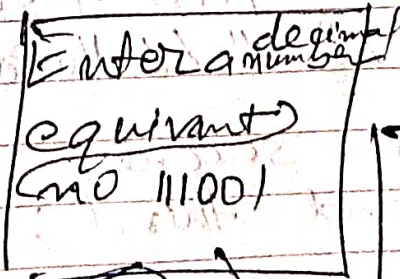 Enter a decimal number
equivant
no 111001